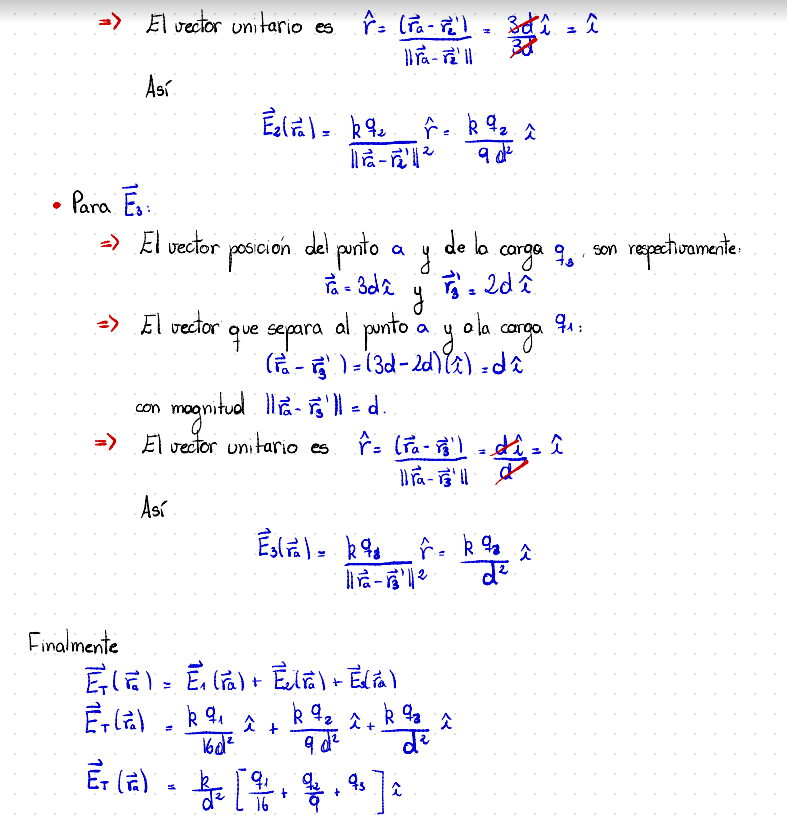 => El vector unitario es r̂ = (r⃗a - r⃗2') / ||r⃗a - r⃗2'|| = 3d î / 3d = î
Así
E⃗2(r⃗a) = k q2 / ||r⃗a - r⃗2'||² r̂ = k q2 / 9d² î
• Para E⃗3:
=> El vector posición del punto a y de la carga q3, son respectivamente:
r⃗a = 3d î y r⃗3' = 2d î
=> El vector que separa al punto a y a la carga q1:
(r⃗a - r⃗3') = (3d - 2d)(î) = d î
con magnitud ||r⃗a - r⃗3'|| = d.
=> El vector unitario es r̂ = (r⃗a - r⃗3') / ||r⃗a - r⃗3'|| = d î / d = î
Así
E⃗3(r⃗a) = k q3 / ||r⃗a - r⃗3'||² r̂ = k q3 / d² î
Finalmente
E⃗T(r⃗a) = E⃗1(r⃗a) + E⃗2(r⃗a) + E⃗3(r⃗a)
E⃗T(r⃗a) = k q1 / 16d² î + k q2 / 9d² î + k q3 / d² î
E⃗T(r⃗a) = k / d² [ q1 / 16 + q2 / 9 + q3 ] î